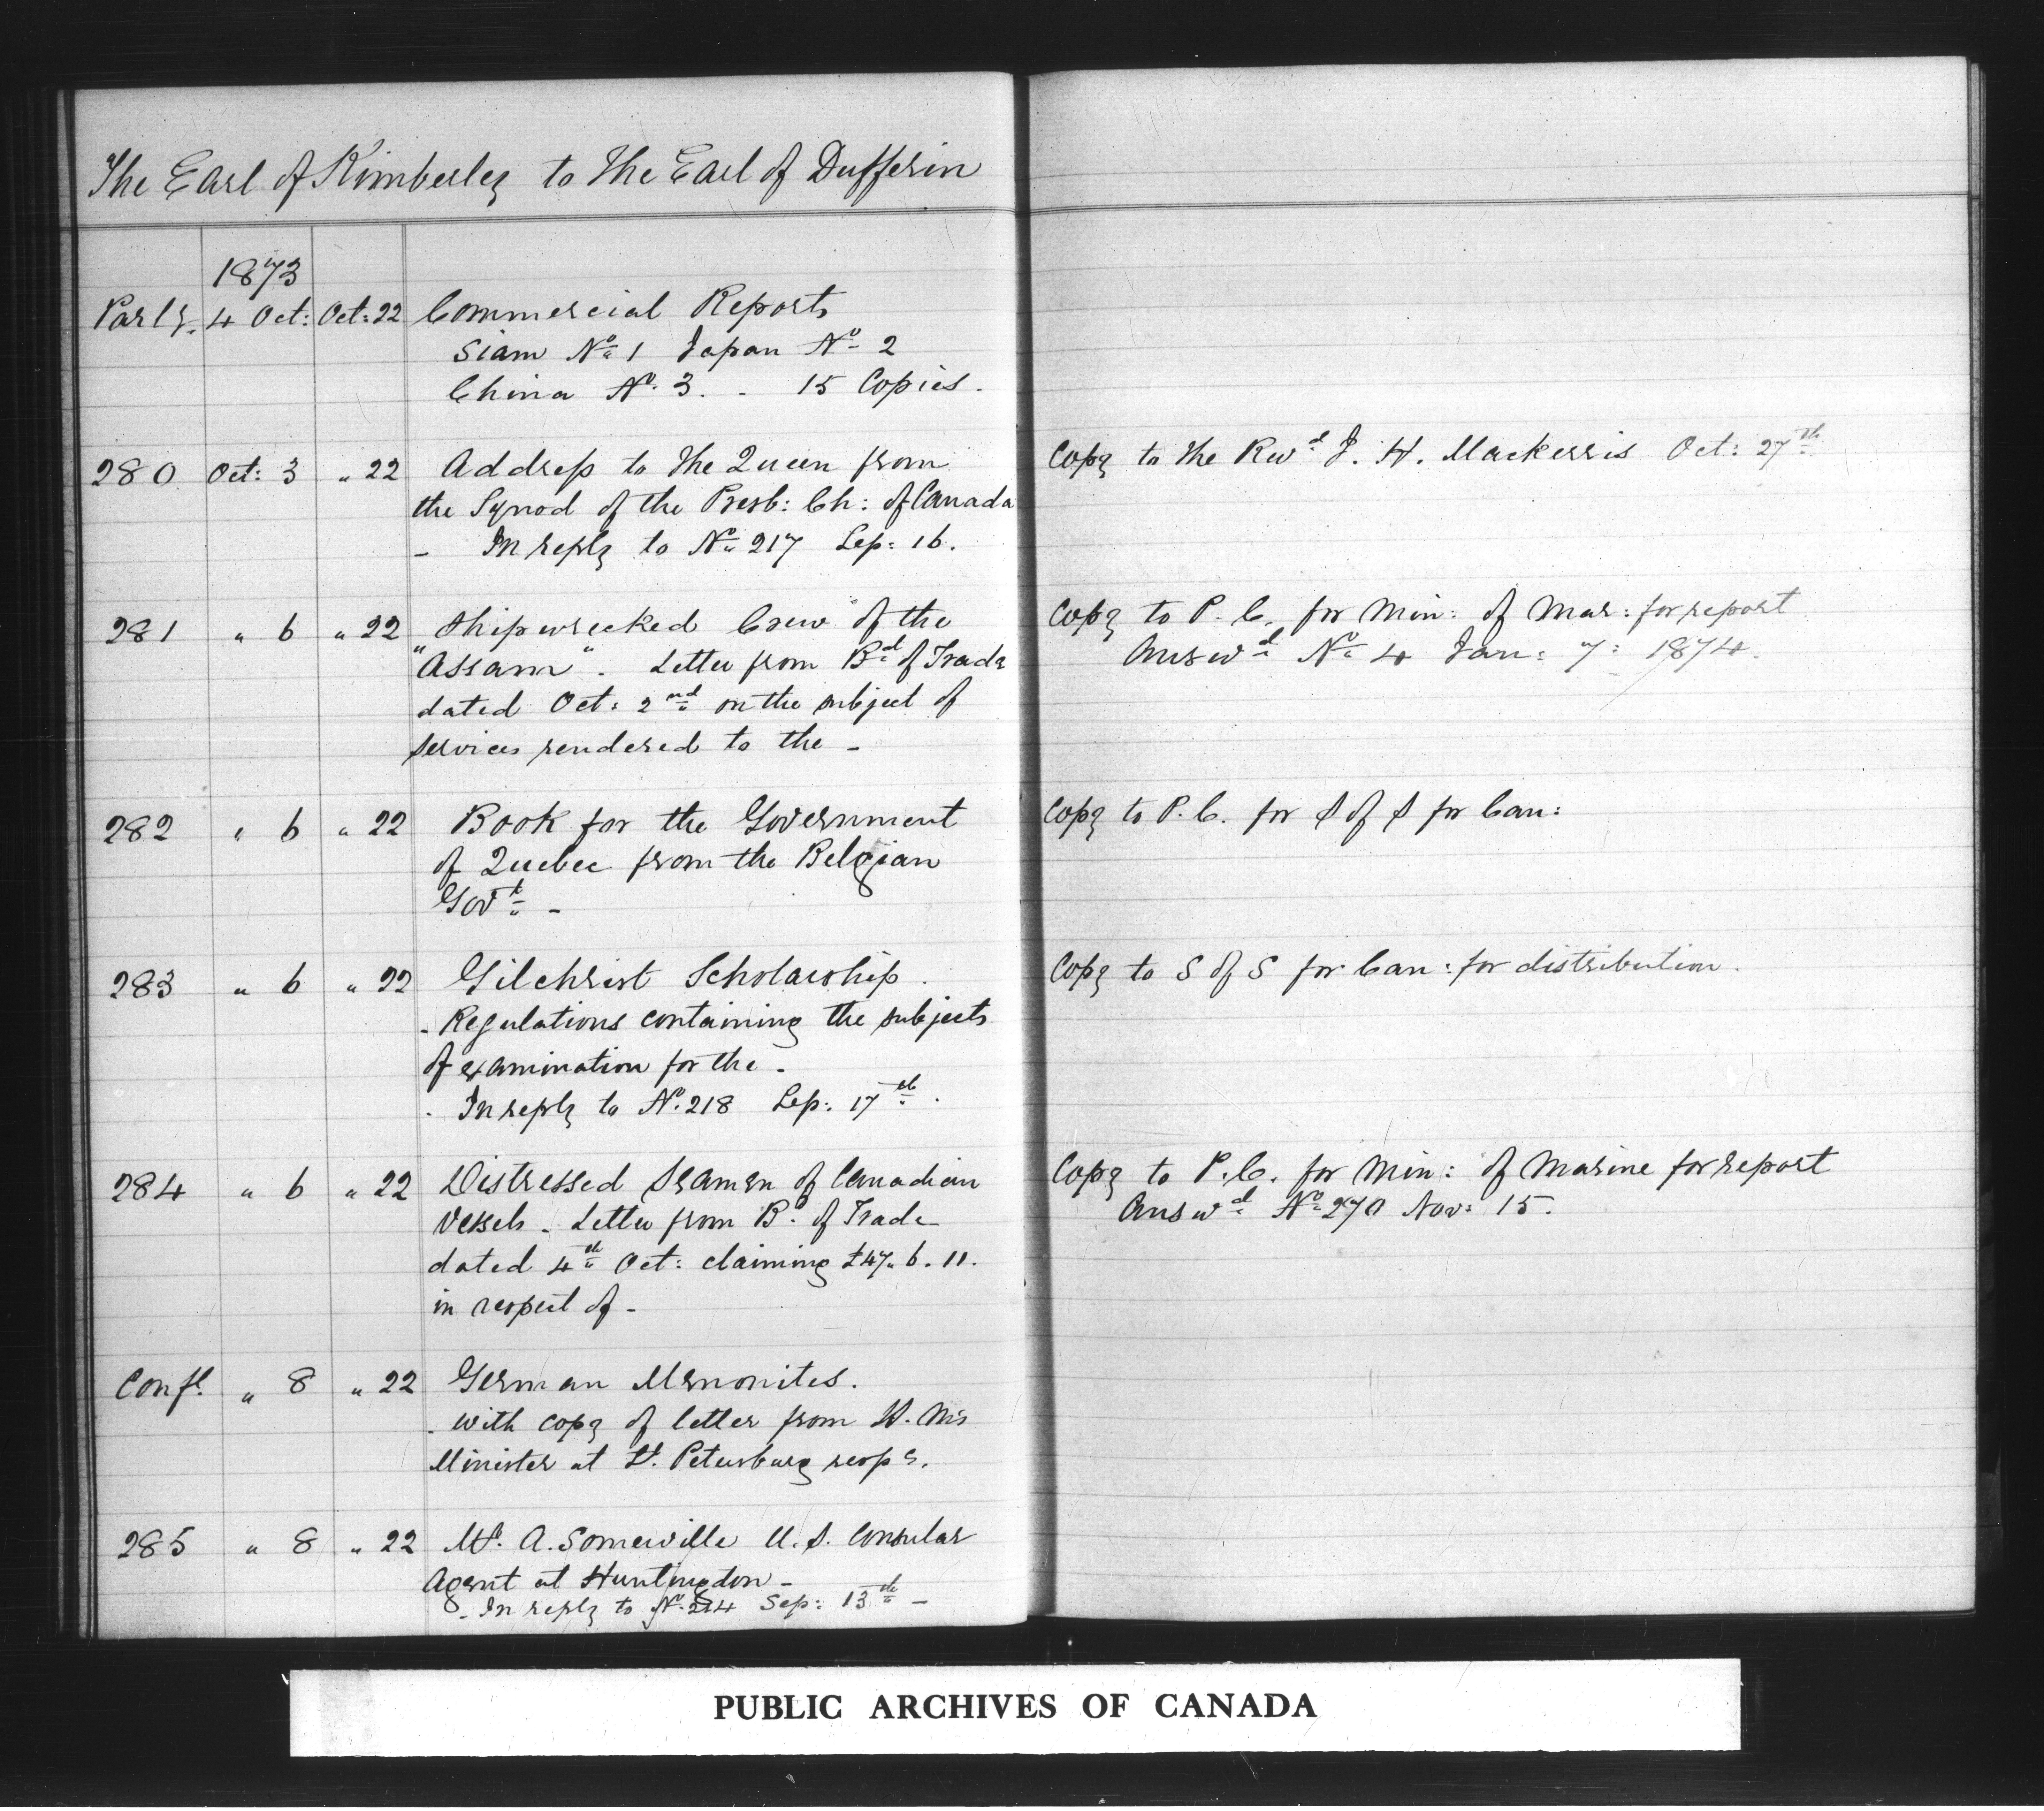 The Earl of Kimberley to The Earl of Dufferin
1873
Parly. 4 Oct: Oct: 22 Commercial Reports
Siam No 1 Japan No 2
China No. 3. - 15 Copies.
280 Oct: 3 " 22 Address to the Queen from
the Synod of the Presb: Ch: of Canada
- In reply to No 217 Sep: 16.
Copy to the Revd J. H. Mackerris Oct: 27th
281 " 6 " 22 Shipwrecked Crew of the
"Assam". Letter from Bd of Trade
dated Oct: 2nd on the subject of
services rendered to the -
Copy to P. C. for Min: of Mar: for report
Answd No 4 Jan: 7: 1874.
282 " 6 " 22 Book for the Government
of Quebec from the Belgian
Govt -
Copy to P. C. for S of S for Can:
283 " 6 " 22 Gilchrist Scholarship.
- Regulations containing the subjects
of examination for the -
- In reply to No. 218 Sep: 17th.
Copy to S of S for Can: for distribution.
284 " 6 " 22 Distressed Seamen of Canadian
Vessels - Letter from Bd of Trade
dated 4th Oct: claiming £47. 6. 11.
in respect of -
Copy to P. C. for Min: of Marine for report
Answd No 270 Nov: 15.
Confl. " 8 " 22 German Menonites.
- with copy of letter from H. M's
Minister at St. Petersburg respg.
285 " 8 " 22 Mr. A. Somerville U. S. Consular
Agent at Huntingdon -
- In reply to No. 214 Sep: 13th -
PUBLIC ARCHIVES OF CANADA